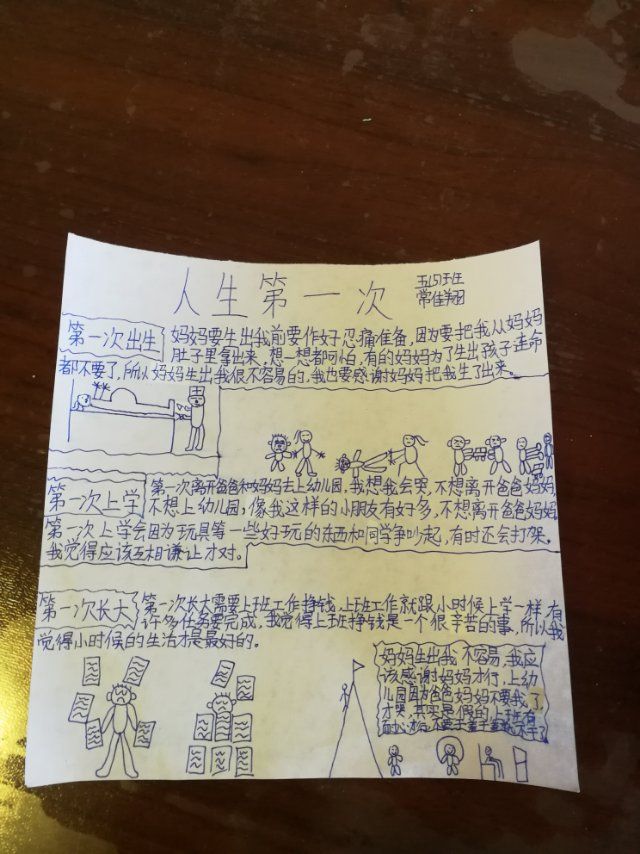 人生第一次
五(5)班
常佳翔
第一次出生
妈妈要生出我前要作好忍痛准备,因为要把我从妈妈
肚子里拿出来,想一想都可怕,有的妈妈为了生出孩子连命
都不要了,所以妈妈生出我很不容易的,我也要感谢妈妈把我生了出来。
第一次上学
第一次离开爸爸和妈妈去上幼儿园,我想我会哭,不想离开爸爸妈妈,
不想上幼儿园,像我这样的小朋友有好多,不想离开爸爸妈妈
第一次上学会因为玩具等一些好玩的东西和同学争吵起,有时还会打架。
我觉得应该互相谦让才对。
第一次长大
第一次长大需要上班工作挣钱,上班工作就跟小时候上学一样有
许多任务要完成,我觉得上班挣钱是一个很辛苦的事,所以我
觉得小时候的生活才是最好的。
妈妈生出我不容易,我应
该感谢妈妈才行,上幼
儿园因为爸爸妈妈不要我了
才哭,其实是假的,上班有